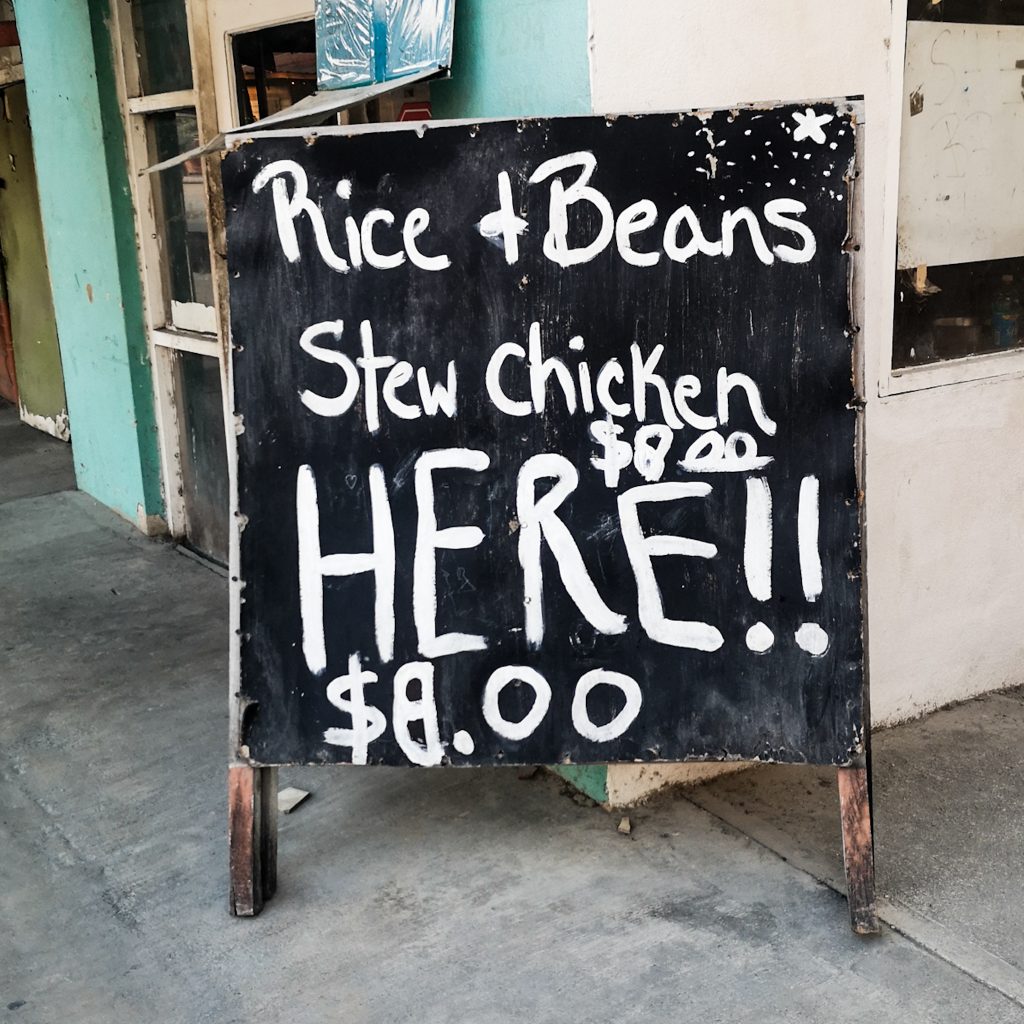 Rice + Beans
Stew Chicken
$8.00
HERE!!
$8.00